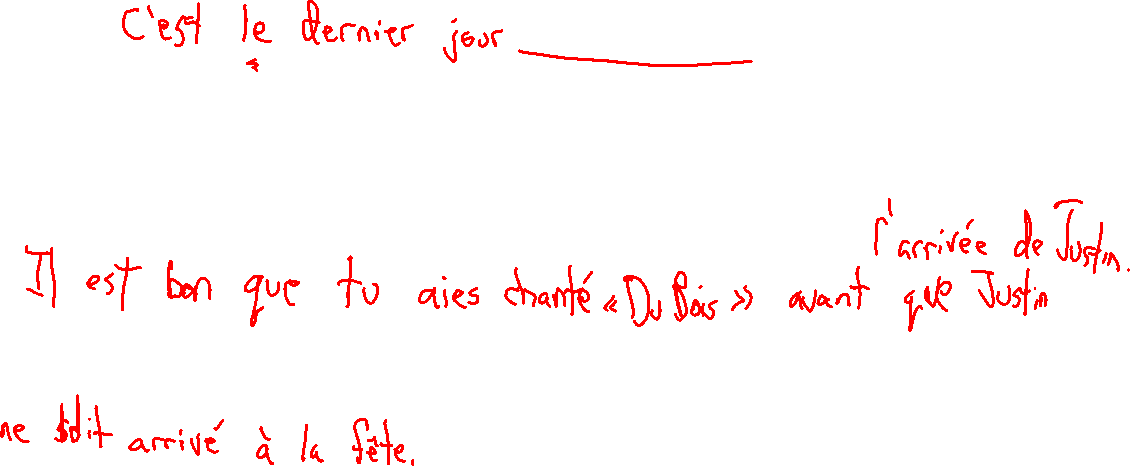 C'est le dernier jour
l'arrivée de Justin.
Il est bon que tu aies chanté « Du Bois » avant que Justin
ne soit arrivé à la fête.